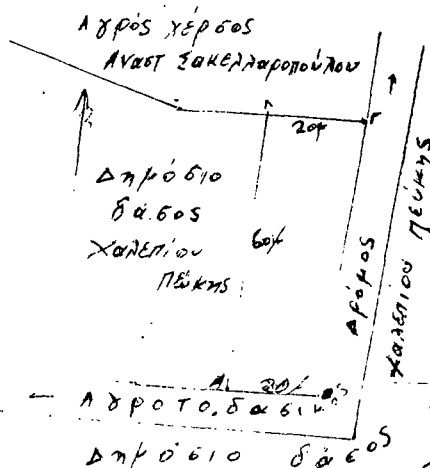 Αγρός χέρσος
Αναστ Σακελλαροπούλου
20μ
Γ
Δημόσιο
δάσος
Χαλεπίου
Πεύκης
60μ
Δρόμος
Χαλεπίου Πεύκης
Α
20μ
Αγροτο.δασικός
Δημόσιο δάσος